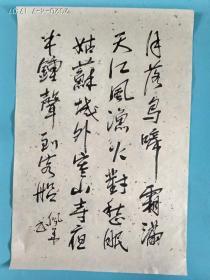 月落烏啼霜滿
天江風漁火對愁眠
姑蘇城外寒山寺夜
半鐘聲到客船